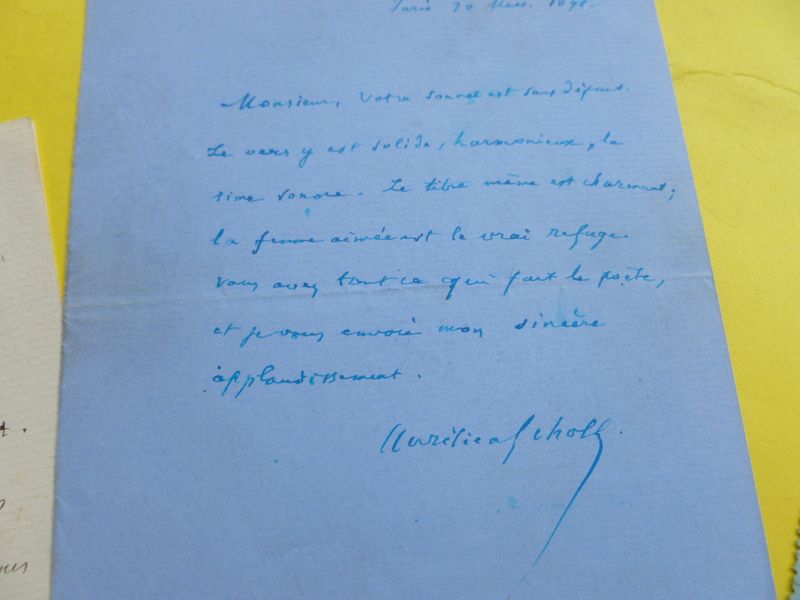 Paris 30 Mars 1898.
Monsieur, Votre sonnet est sans défaut.
Le vers y est solide, harmonieux, la
rime sonore. Le titre même est charmant;
la femme aimée est le vrai refuge.
Vous avez tout ce qui fait le poète,
et je vous envoie mon sincère
applaudissement.
Aurélien Scholl.